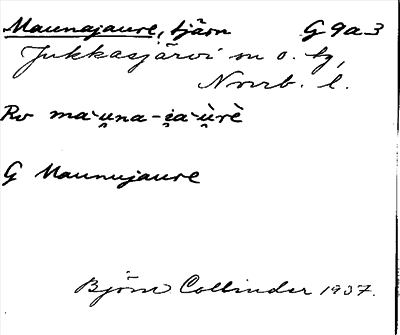 Maunajaure, tjärn G 9a3
Jukkasjärvi sn o. tg,
Norrb. l.
Rv ma·u̯na-i̯a·ùrè
G Maunujaure
Björn Collinder 1937.